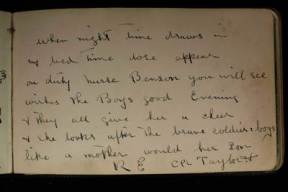 when night time draws in
& bed time dose appear
on duty Nurse Benson you will see
wishes the Boys good Evening
& they all give her a cheer
& she looks after the brave soldiers boys
like a mother would her son
R E Cpl Taylor